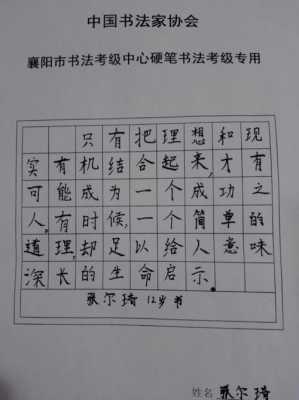 中国书法家协会
襄阳市书法考级中心硬笔书法考级专用
只有把理想和现
实有机结合起来,才有
可能成为一个成功之
人。有时候,一个简单的
道理,却足以给人意味
深长的生命启示。
张尔琦 12岁书
姓名 张尔琦